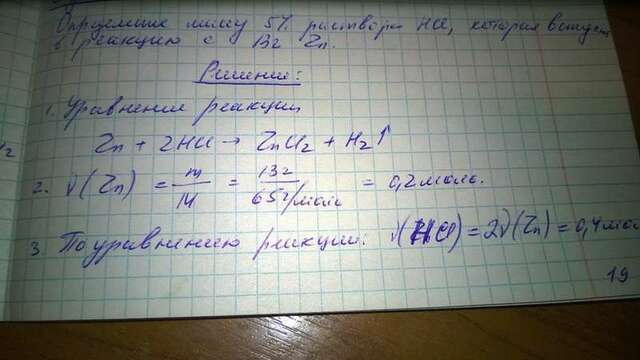 Определить массу 5% раствора HCl, которая вступит
в реакцию с 13г Zn.
Решение:
1. Уравнение реакции
Zn + 2HCl → ZnCl₂ + H₂↑
2. ν(Zn) = m/M = 13г/65г/моль = 0,2 моль.
3. По уравнению реакции: ν(HCl) = 2ν(Zn) = 0,4 мол
19